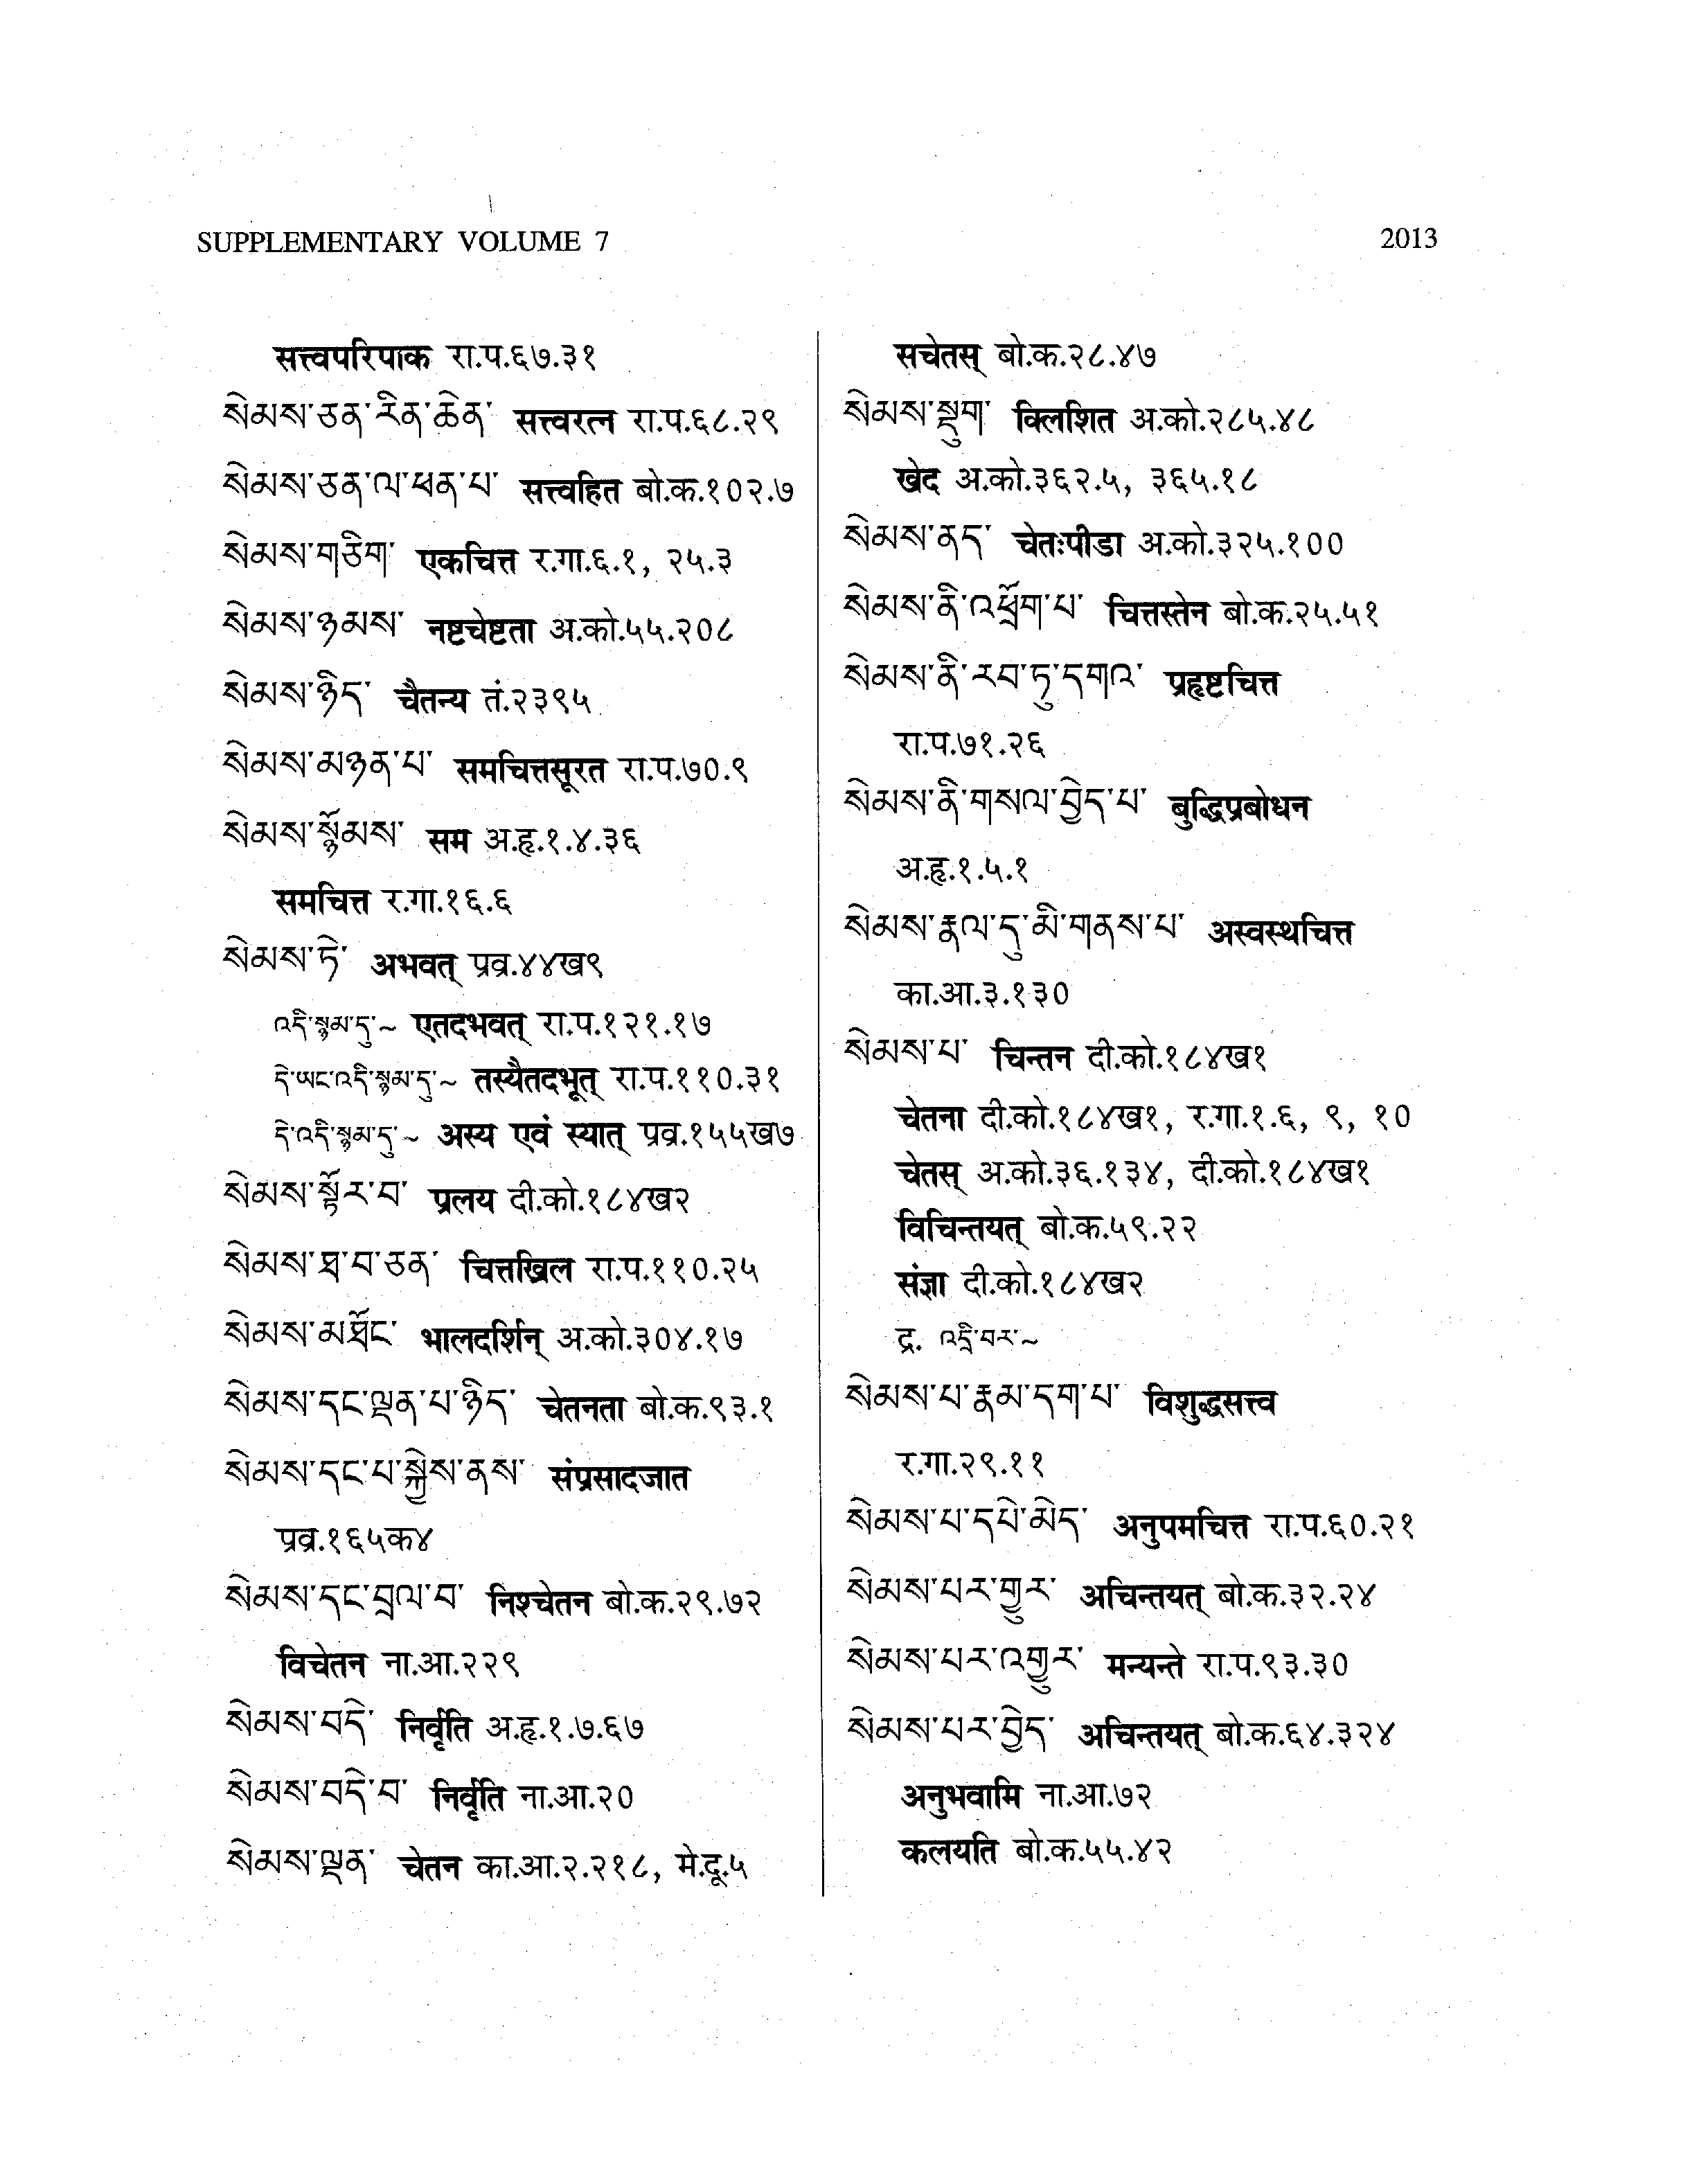 SUPPLEMENTARY VOLUME 7
2013
सत्त्वपरिपाक रा.प.६७.३१
སེམས་ཅན་རིན་ཆེན་ सत्त्वरत्न रा.प.६८.२९
སེམས་ཅན་ལ་ཕན་པ་ सत्त्वहित बो.क.१०२.७
སེམས་གཅིག་ एकचित्त र.गा.६.१, २५.३
སེམས་ཉམས་ नष्टचेष्टता अ.को.५५.२०८
སེམས་ཉིད་ चैतन्य तं.२३९५
སེམས་མཉན་པ་ समचित्तसूरत रा.प.७०.९
སེམས་སྙོམས་ सम अ.हृ.१.४.३६
समचित्त र.गा.१६.६
སེམས་ཏེ་ अभवत् प्रव्र.४४ख९
འདི་སྙམ་དུ་~ एतदभवत् रा.प.१२१.१७
དེ་ཡང་འདི་སྙམ་དུ་~ तस्यैतदभूत् रा.प.११०.३१
དེ་འདི་སྙམ་དུ་~ अस्य एवं स्यात् प्रव्र.१५५ख७
སེམས་སྟོར་བ་ प्रलय दी.को.१८४ख२
སེམས་ཐ་བ་ཅན་ चित्तखिल रा.प.११०.२५
སེམས་མཐོང་ भालदर्शिन् अ.को.३०४.१७
སེམས་དང་ལྡན་པ་ཉིད་ चेतनता बो.क.९३.१
སེམས་དང་པ་སྐྱེས་ནས་ संप्रसादजात
प्रव्र.१६५क४
སེམས་དང་བྲལ་བ་ निश्चेतन बो.क.२९.७२
विचेतन ना.आ.२२९
སེམས་བདེ་ निर्वृति अ.हृ.१.७.६७
སེམས་བདེ་བ་ निर्वृति ना.आ.२०
སེམས་ལྡན་ चेतन का.आ.२.२१८, मे.दू.५
सचेतस् बो.क.२८.४७
སེམས་སྡུག་ क्लिशित अ.को.२८५.४८
खेद अ.को.३६२.५, ३६५.१८
སེམས་ནད་ चेतःपीडा अ.को.३२५.१००
སེམས་ནི་འཕྲོག་པ་ चित्तस्तेन बो.क.२५.५१
སེམས་ནི་རབ་ཏུ་དགའ་ प्रहृष्टचित्त
रा.प.७१.२६
སེམས་ནི་གསལ་བྱེད་པ་ बुद्धिप्रबोधन
अ.हृ.१.५.१
སེམས་རྣལ་དུ་མི་གནས་པ་ अस्वस्थचित्त
का.आ.३.१३०
སེམས་པ་ चिन्तन दी.को.१८४ख१
चेतना दी.को.१८४ख१, र.गा.१.६, ९, १०
चेतस् अ.को.३६.१३४, दी.को.१८४ख१
विचिन्तयत् बो.क.५९.२२
संज्ञा दी.को.१८४ख२
द्र. འདྲི་བར་~
སེམས་པ་རྣམ་དག་པ་ विशुद्धसत्त्व
र.गा.२९.११
སེམས་པ་དཔེ་མེད་ अनुपमचित्त रा.प.६०.२१
སེམས་པར་གྱུར་ अचिन्तयत् बो.क.३२.२४
སེམས་པར་འགྱུར་ मन्यन्ते रा.प.९३.३०
སེམས་པར་བྱེད་ अचिन्तयत् बो.क.६४.३२४
अनुभवामि ना.आ.७२
कलयति बो.क.५५.४२